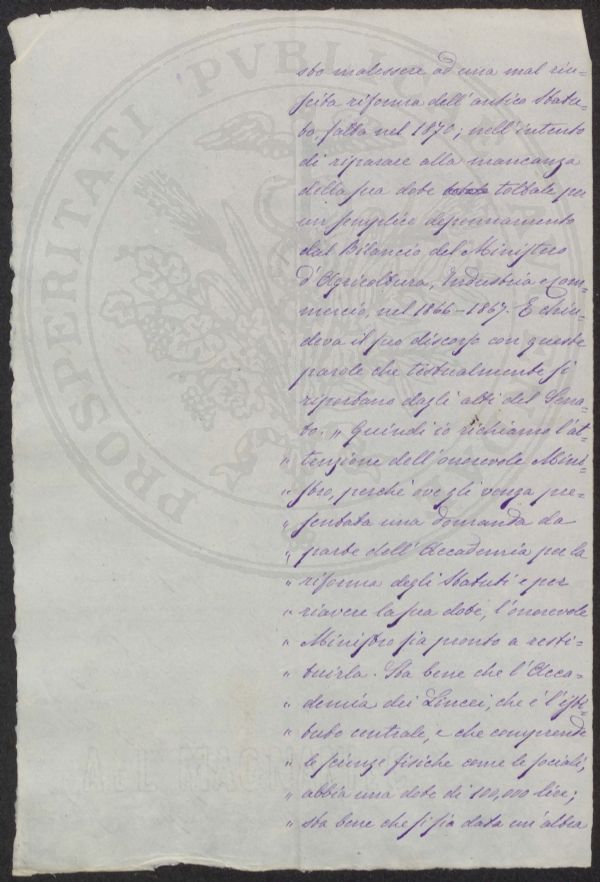 PROSPERITATI PVBLICAE
sto malessere ad una mal riu-
scita riforma dell'antico Statu-
to, fatta nel 1870; nell'intento
di riparare alla mancanza
della sua dote toltale per
un semplice depennamento
dal Bilancio del Ministero
d'Agricoltura, Industria e Com-
mercio, nel 1866-1867. E chiu-
deva il suo discorso con queste
parole che testualmente si
riportano dagli atti del Sena-
to. „ Quindi io richiamo l'at-
„ tenzione dell'onorevole Mini-
„ stro, perchè ove gli venga pre-
„ sentata una domanda da
„ parte dell'Accademia per la
„ riforma degli Statuti e per
„ riavere la sua dote, l'onorevole
„ Ministro sia pronto a resti-
„ tuirla. Sta bene che l'Acca-
„ demia dei Lincei, che è l'isti-
„ tuto centrale, e che comprende
„ le scienze fisiche come le sociali,
„ abbia una dote di 100,000 lire;
„ sta bene che si sia data un'altra